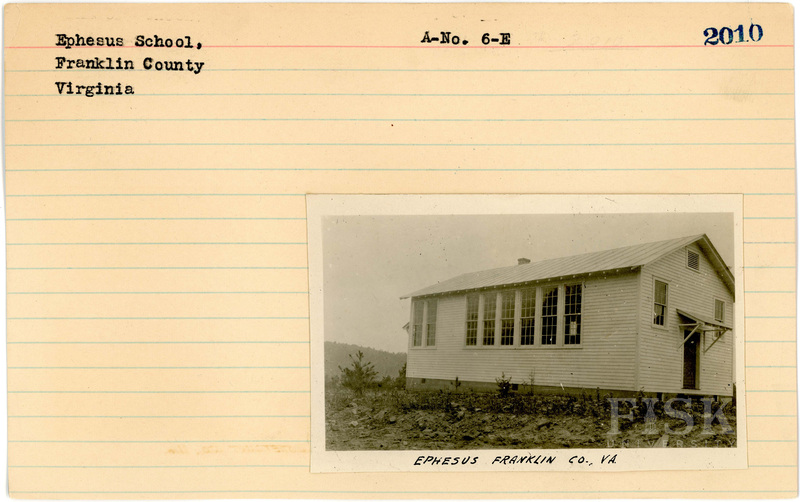 Ephesus School,
Franklin County
Virginia
A-No. 6-E
2010
FISK
UNIVERSITY
EPHESUS FRANKLIN CO., VA.